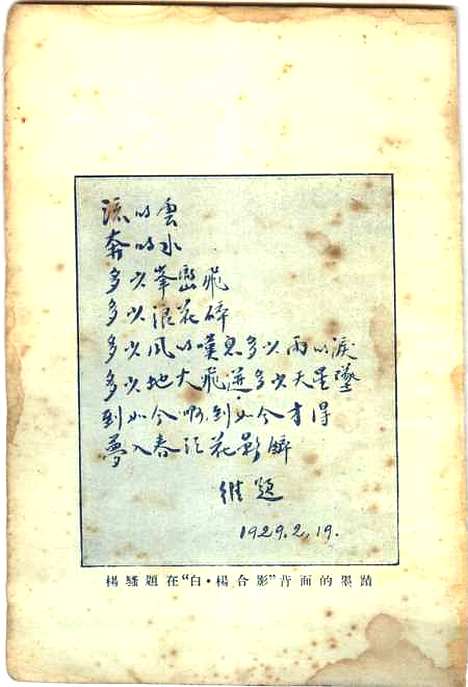 流的雲
奔的水
多少峯巒飛
多少浪花碎
多少風的嘆息多少雨的淚
多少地火飛迸多少天星墜
到如今啊,到如今才得
夢入春江花影醉
維題
1929.2,19.
楊騷題在“白·楊合影”背面的墨蹟